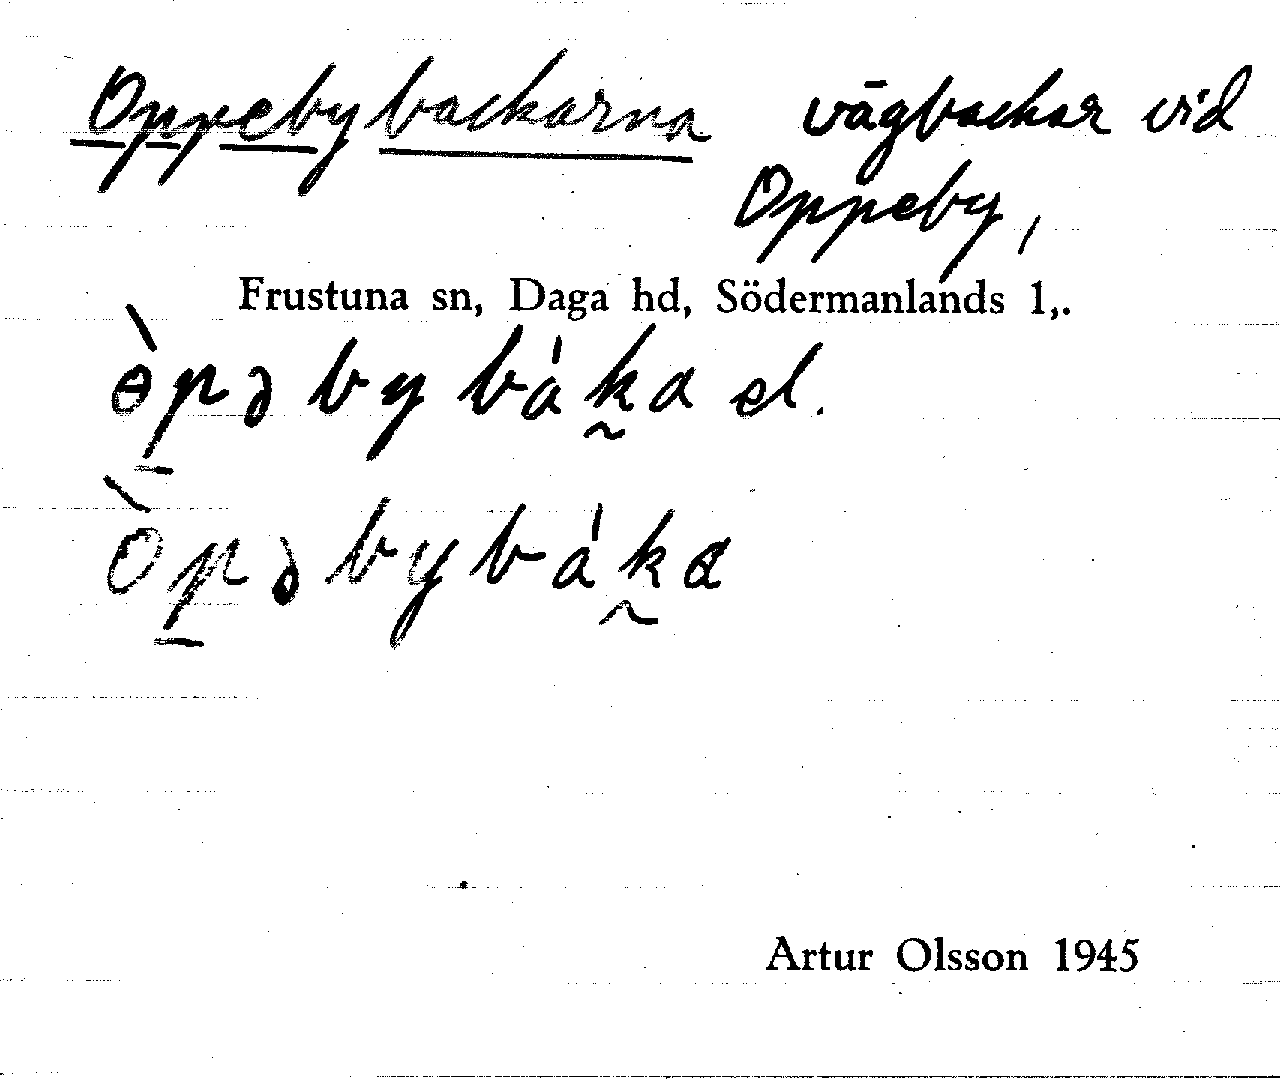 Oppebybackarna vägbackar vid
Oppeby,
Frustuna sn, Daga hd, Södermanlands l,.
ɵ̀p̱əbybák̰a el.
òp̱əbybák̰a
Artur Olsson 1945